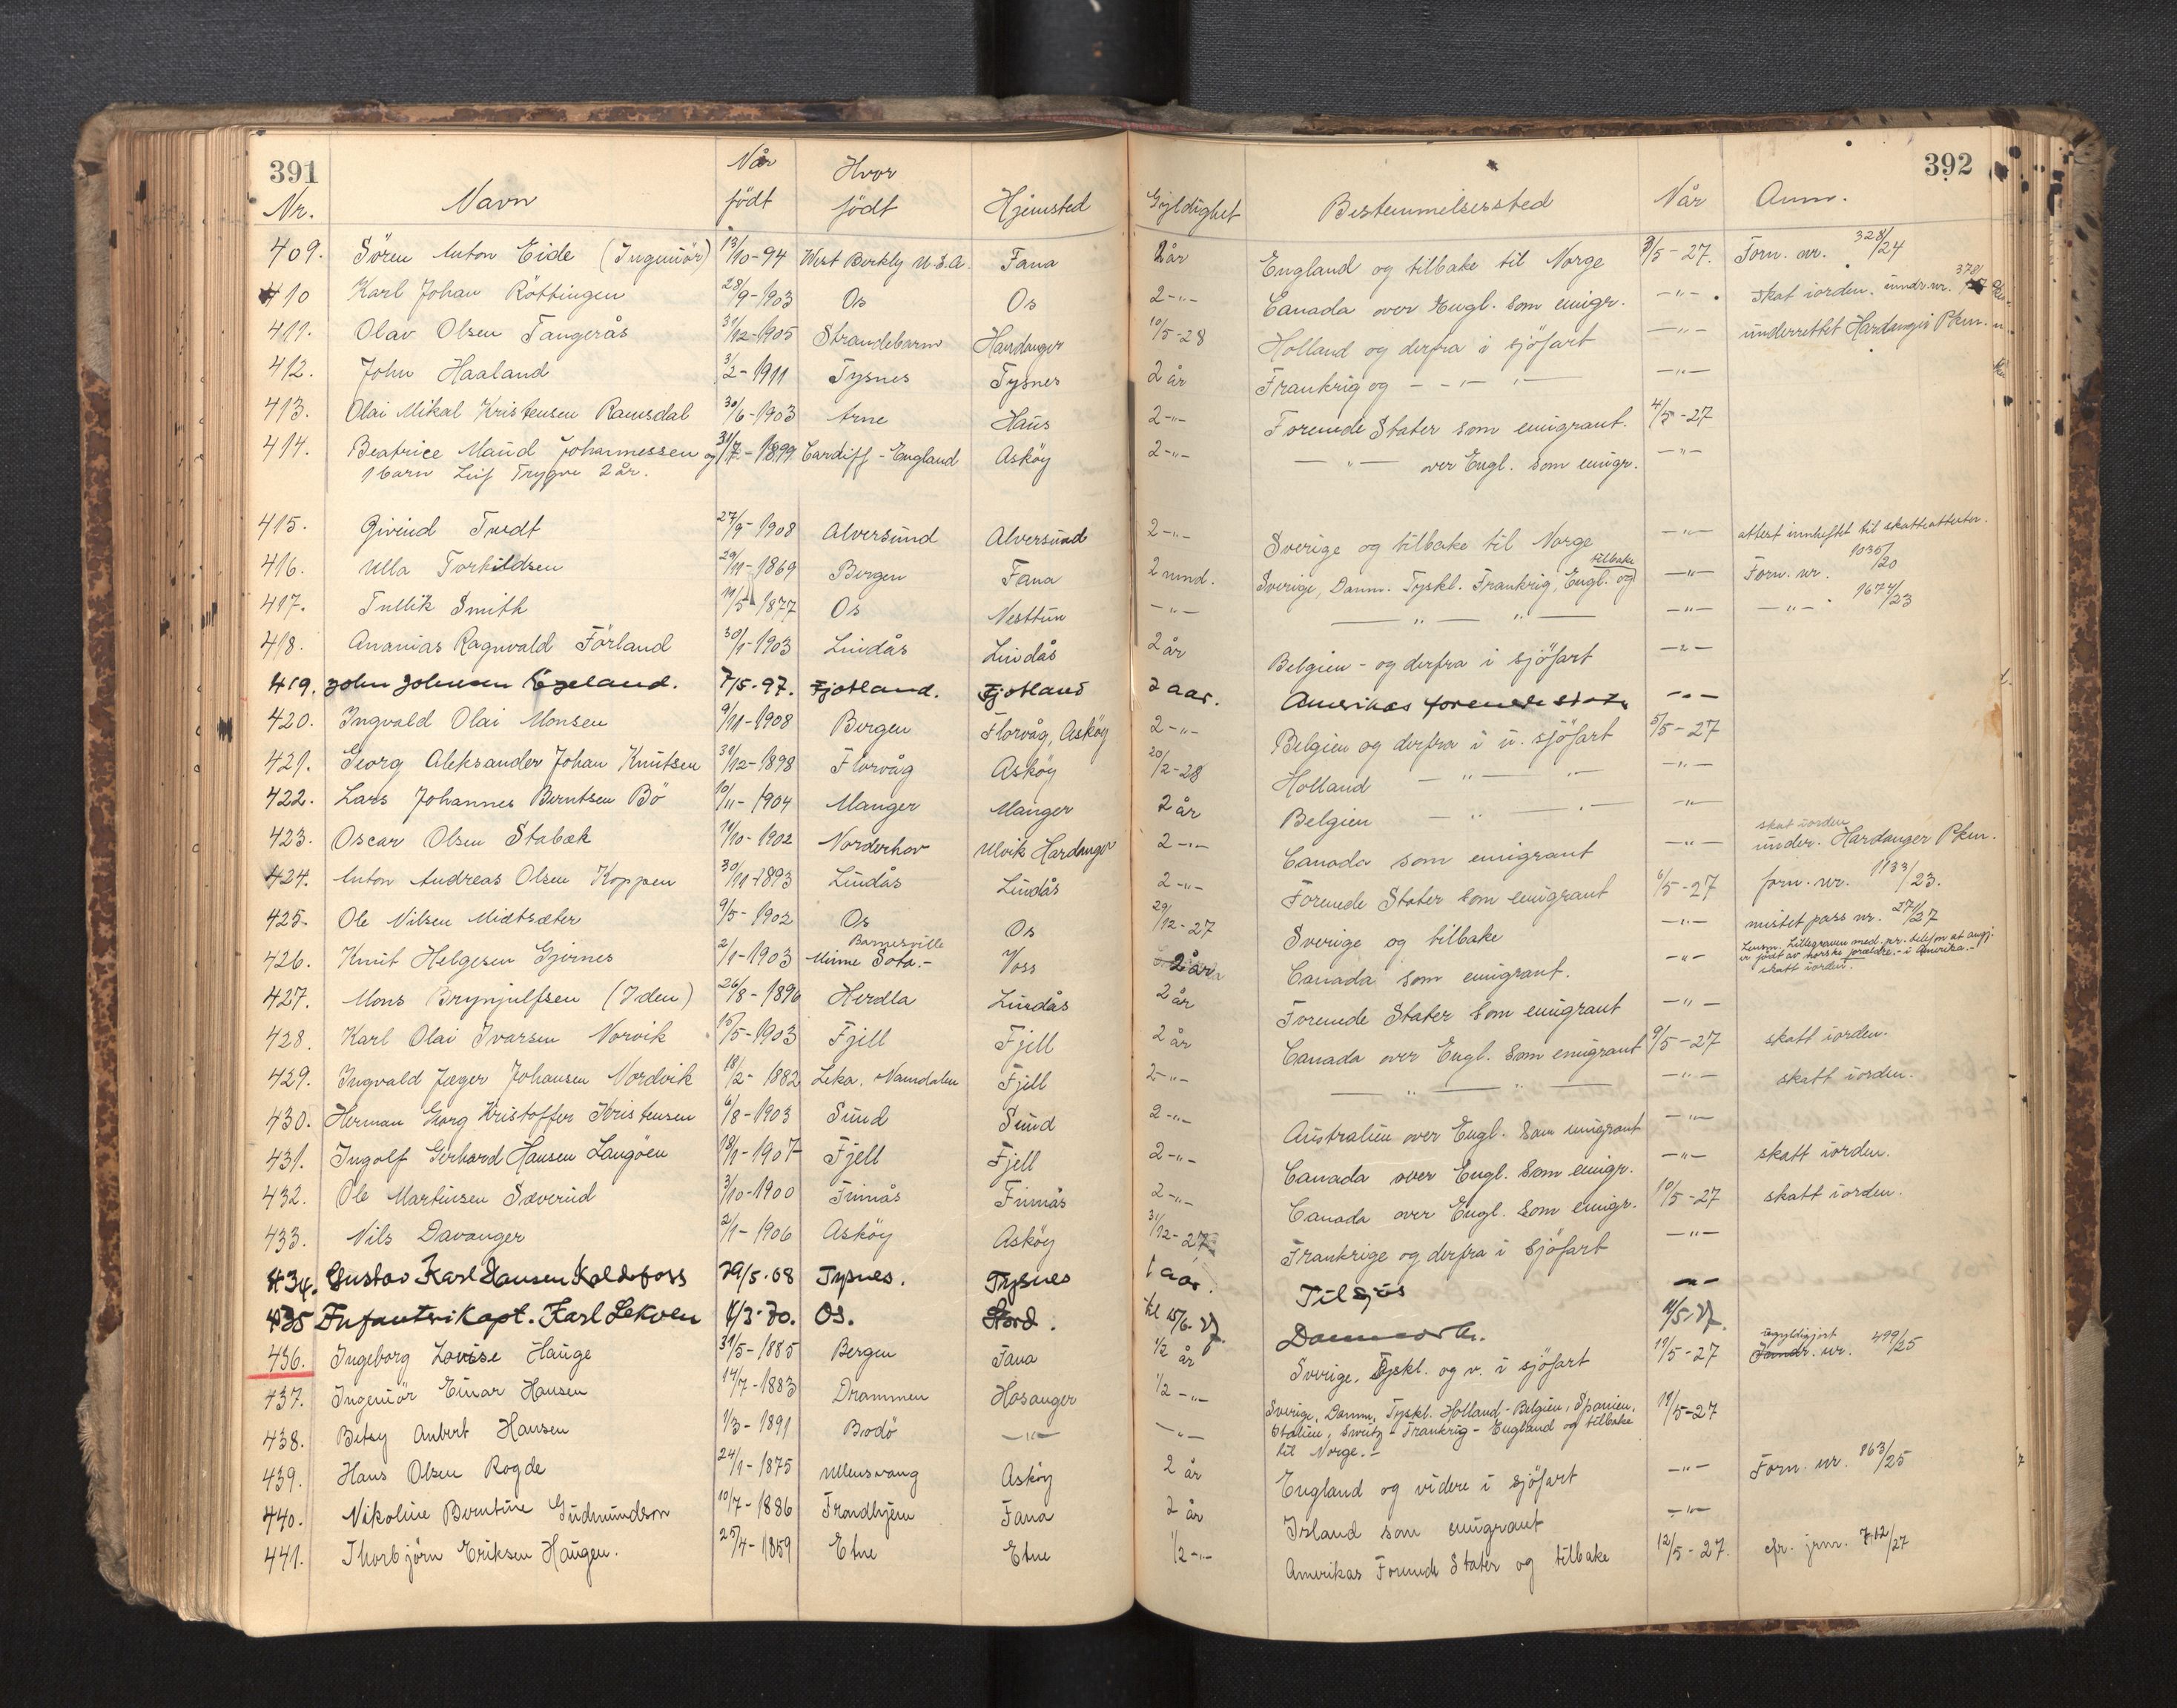 391
392
Nr. Navn Når födt Hvor födt Hjemsted Gyldighet Bestemmelsessted Når Anm.
409. Sören Anton Eide (Ingeniör) 13/10-94 West Berkly U.S.A. Fana 2 år England og tilbake til Norge 3/5-27. Forn. nr. 328/24
410 Karl Johan Röttingen 28/9-1903 Os Os 2-"- Canada over Engl. som emigr. -"- Skat iorden.
411. Olav Olsen Tangerås 31/12-1905 Strandebarm Hardanger 10/5-28 Holland og derfra i sjöfart -"- underrettet Hardanger Pkm.
412. John Haaland 3/2-1911 Tysnes Tysnes 2 år Frankrig og - -"- "- -"-
413. Olai Mikal Kristensen Ramsdal 30/6-1903 Arne Haus 2-"- Forenede Stater som emigrant. 4/5-27
414. Beatrice Maud Johannessen og 31/7-1899 Cardiff - England Asköy 2-"- -"- over Engl. som emigr. -"-
1 barn Leif Trygve 2 år.
415. Eivind Tvedt 27/9-1908 Alversund Alversund 2-"- Sverige og tilbake til Norge -"- attest innheftet til skatteattester.
416. Ulla Torkildsen 29/11-1869 Bergen Fana 2 mnd. Sverige, Danm. Tyskl. Frankrig, Engl. og tilbake -"- Forn. nr. 1035/20
417. Tullik Smith 11/5-1877 Os Nesttun -"- -"- "- -"- -"- 1674/23
418. Ananias Ragnvald Förland 30/1-1903 Lindås Lindås 2 år Belgien - og derfra i sjöfart -"-
419. John Johnsen Egeland. 7/5-97. Fjotland. Fjotland 2 aar. Amerikas forenede stater -"-
420. Ingvald Olai Monsen 9/11-1908 Bergen Florvåg, Asköy 2-"- Belgien og derfra i u. sjöfart 5/5-27
421. Georg Aleksander Johan Knutsen 30/12-1898 Florvåg Asköy 20/2-28 Holland -"- "- -"-
422. Lars Johannes Berntsen Bö 10/11-1904 Manger Manger 2 år Belgien -"- "- -"-
423. Oscar Olsen Stabæk 11/10-1902 Norderhov Ulvik Hardanger 2-"- Canada som emigrant -"- skat iorden under. Hardanger Pkm.
424. Anton Andreas Olsen Koppen 30/11-1893 Lindås Lindås 2-"- Forenede Stater som emigrant 6/5-27 forn. nr. 1133/23.
425. Ole Nilsen Midtsæter 9/5-1902 Os Os 29/12-27 Sverige og tilbake -"- mistet pass nr. 271/27
426. Knut Helgesen Gjernes 2/1-1903 Barnesville Minne Sota.- Voss 2 år Canada som emigrant. -"- Lensm. Lillegraven med. pr. telefon at angj. er födt av norske foreldre.- i Amerika.- skatt iorden.
427. Mons Brynjulfsen (Iden) 26/8-1896 Herdla Lindås 2 år Forenede Stater som emigrant -"-
428. Karl Olai Ivarsen Norvik 15/5-1903 Fjell Fjell 2 år Canada over Engl. som emigrant 9/5-27 skatt iorden.
429. Ingvald Jæger Johansen Nordvik 18/2-1882 Leka. Namdalen Fjell 2-"- -"- "- -"- skatt iorden.
430. Herman Georg Kristoffer Kristensen 6/8-1903 Sund Sund 2-"- Australien over Engl. som emigrant -"-
431. Ingolf Gerhard Hansen Langöen 18/1-1907 Fjell Fjell 2-"- Canada over Engl. som emigr. -"- skatt iorden.
432. Ole Martinsen Sæverud 3/10-1900 Finnås Finnås 2-"- Canada over Engl. som emigr. 10/5-27 skatt iorden.
433. Nils Davanger 2/1-1906 Asköy Asköy 31/12-27 Frankrige og derfra i sjöfart -"-
434. Gustav Karl Hansen Koldefoss 29/5.08 Tysnes. Tysnes 1 aar. Tilsjøs -"-
435 Infanterikapt. Karl Lekven 4/3.70. Os. Stord. til 15/6.27. Danmark. 11/5.27.
436. Ingeborg Lovise Hauge 31/5-1885 Bergen Fana 1/2 år Sverige, Tyskl. og v. i sjöfart 11/5-27 ugyldigjort nr. 499/25
437. Ingeniör Einar Hansen 14/7-1883 Drammen Hosanger 1/2-"- Sverige, Danm, Tyskl. Holland - Belgien, Spanien, 11/5-27
438. Betsy Aubert Hansen 1/3-1891 Bodö -"- -"- Italien, Sveitz - Frankrig - England og tilbake til Norge.-
439. Hans Olsen Rogde 24/1-1875 Ullensvang Asköy 2 år England og videre i sjöfart -"- Forn. nr. 863/25
440. Nikoline Berntine Gudmundson 10/7-1886 Trondhjem Fana 2 år Island som emigrant -"-
441. Thorbjörn Eriksen Haugen. 25/4-1859 Etne Etne 1/2-"- Amerikas Forende Stater og tilbake 12/5-27. cfr. jrn. 712/27